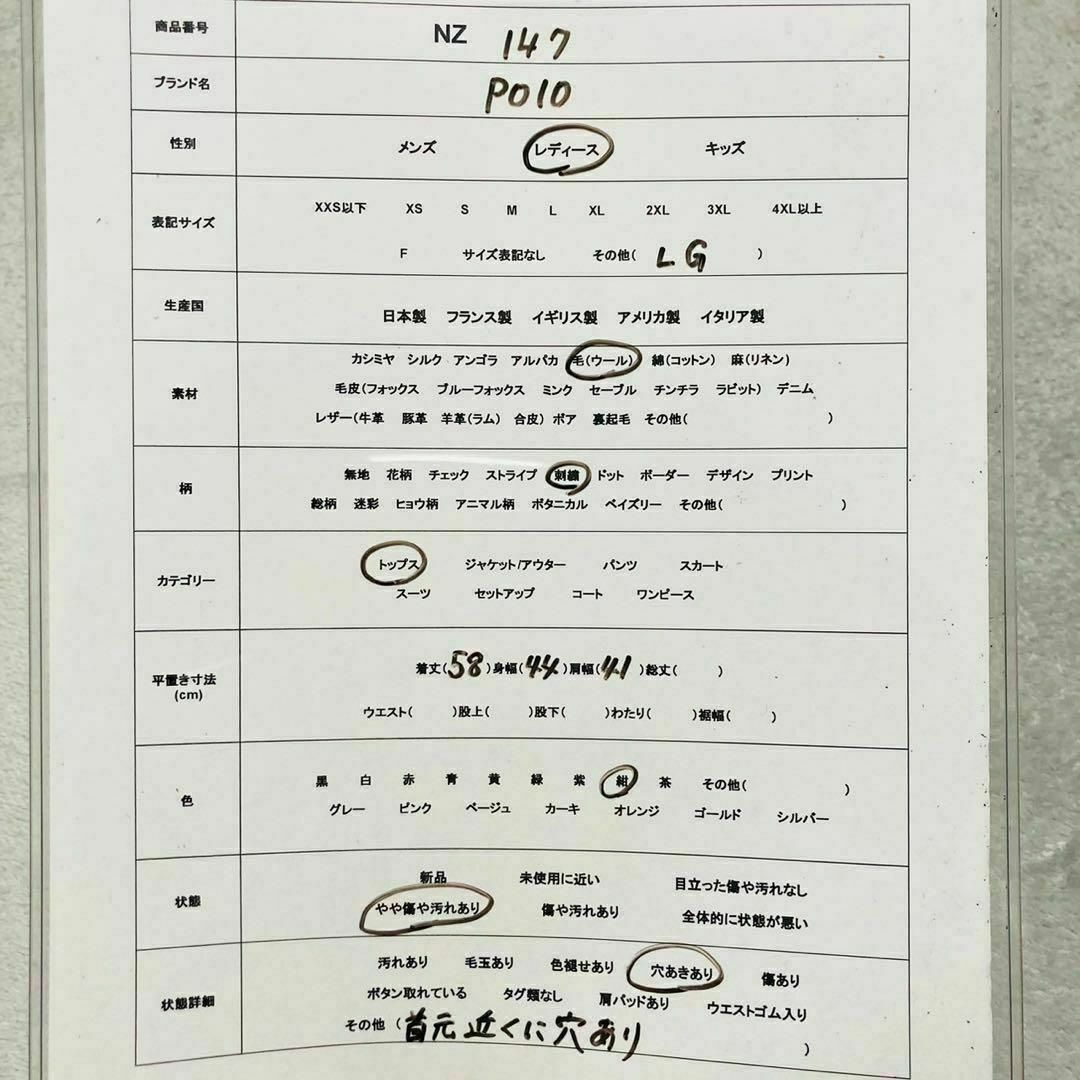 商品番号 NZ 147
ブランド名 POlO
性別 メンズ レディース キッズ
表記サイズ XXS以下 XS S M L XL 2XL 3XL 4XL以上
F サイズ表記なし その他( LG )
生産国 日本製 フランス製 イギリス製 アメリカ製 イタリア製
素材 カシミヤ シルク アンゴラ アルパカ 毛(ウール) 綿(コットン) 麻(リネン)
毛皮(フォックス ブルーフォックス ミンク セーブル チンチラ ラビット) デニム
レザー(牛革 豚革 羊革(ラム) 合皮) ボア 裏起毛 その他( )
柄 無地 花柄 チェック ストライプ 刺繍 ドット ボーダー デザイン プリント
総柄 迷彩 ヒョウ柄 アニマル柄 ボタニカル ペイズリー その他( )
カテゴリー トップス ジャケット/アウター パンツ スカート
スーツ セットアップ コート ワンピース
平置き寸法 (cm) 着丈(58)身幅(44)肩幅(41)総丈( )
ウエスト( )股上( )股下( )わたり( )裾幅( )
色 黒 白 赤 青 黄 緑 紫 紺 茶 その他( )
グレー ピンク ベージュ カーキ オレンジ ゴールド シルバー
状態 新品 未使用に近い 目立った傷や汚れなし
やや傷や汚れあり 傷や汚れあり 全体的に状態が悪い
状態詳細 汚れあり 毛玉あり 色褪せあり 穴あきあり 傷あり
ボタン取れている タグ類なし 肩パッドあり ウエストゴム入り
その他 ( 首元近くに穴あり )